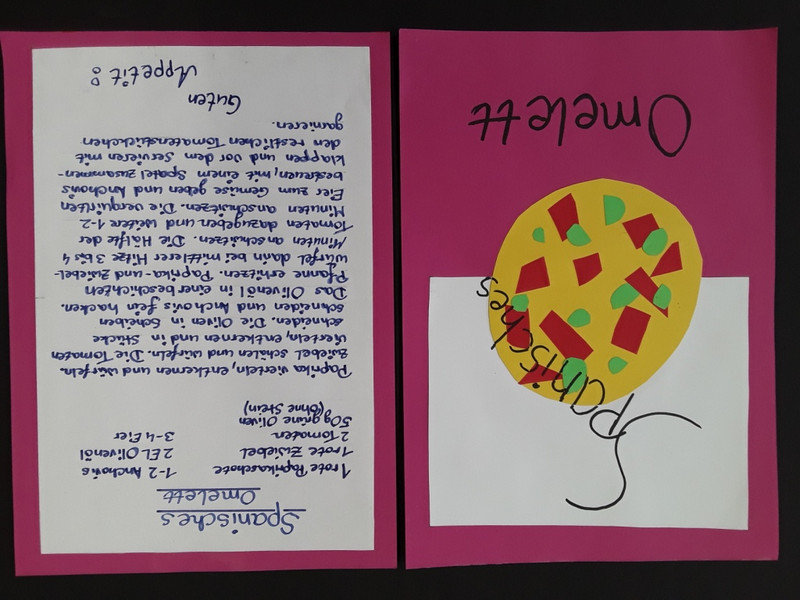 Spanisches
Omelett
Spanisches
Omelett
1 rote Paprikaschote 1-2 Anchovis
1 rote Zwiebel 2 EL Olivenöl
2 Tomaten 3-4 Eier
50g grüne Oliven
(ohne Stein)
Paprika vierteln, entkernen und würfeln.
Zwiebel schälen und würfeln. Die Tomaten
vierteln, entkernen und in Stücke
schneiden. Die Oliven in Scheiben
schneiden und Anchovis fein hacken.
Das Olivenöl in einer beschichten
Pfanne erhitzen. Paprika- und Zwiebel-
würfel darin bei mittlerer Hitze 3 bis 4
Minuten anschwitzen. Die Hälfte der
Tomaten dazugeben und weitere 1-2
Minuten anschwitzen. Die verquirlten
Eier zum Gemüse geben und Anchovis
bestreuen, mit einem Spatel zusammen-
klappen und vor dem Servieren mit
den restlichen Tomatenstückchen
garnieren.
Guten
Appetit!